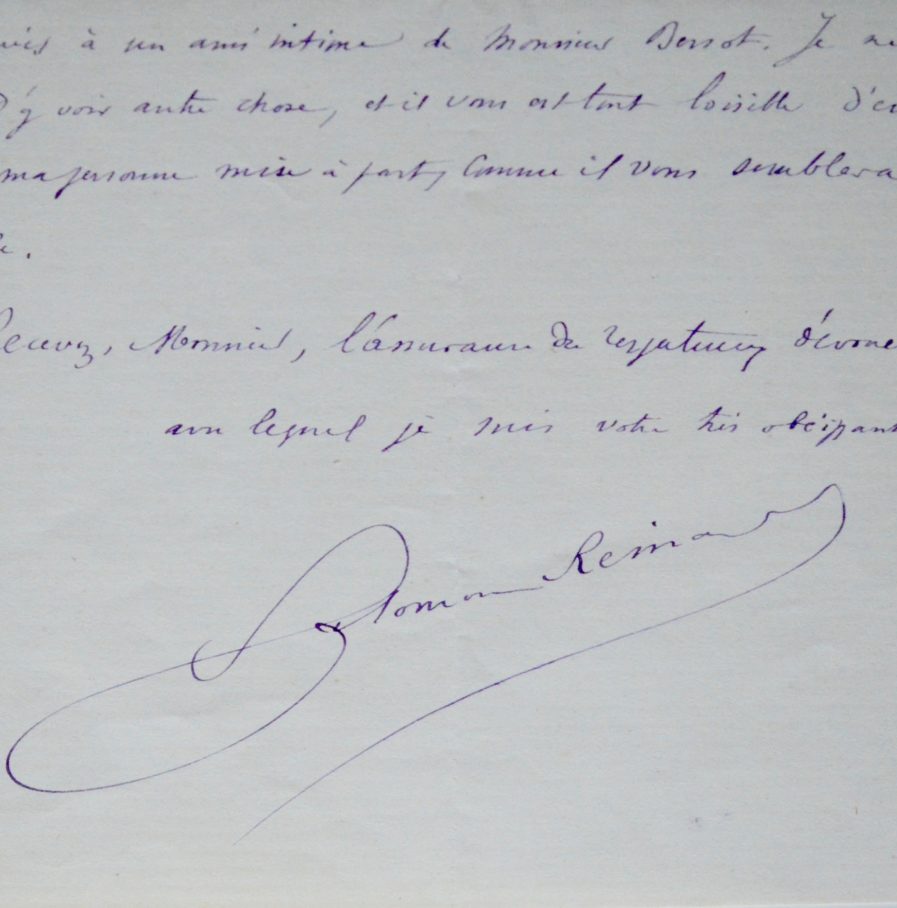 à un ami intime de Monsieur Bersot. Je ne
d'y voir autre chose, et il vous est tout loisible
ma personne mise à part, comme il vous semblera
Recevez, Monsieur, l'assurance du
avec lequel je suis votre très obéissant
Salomon Reinach